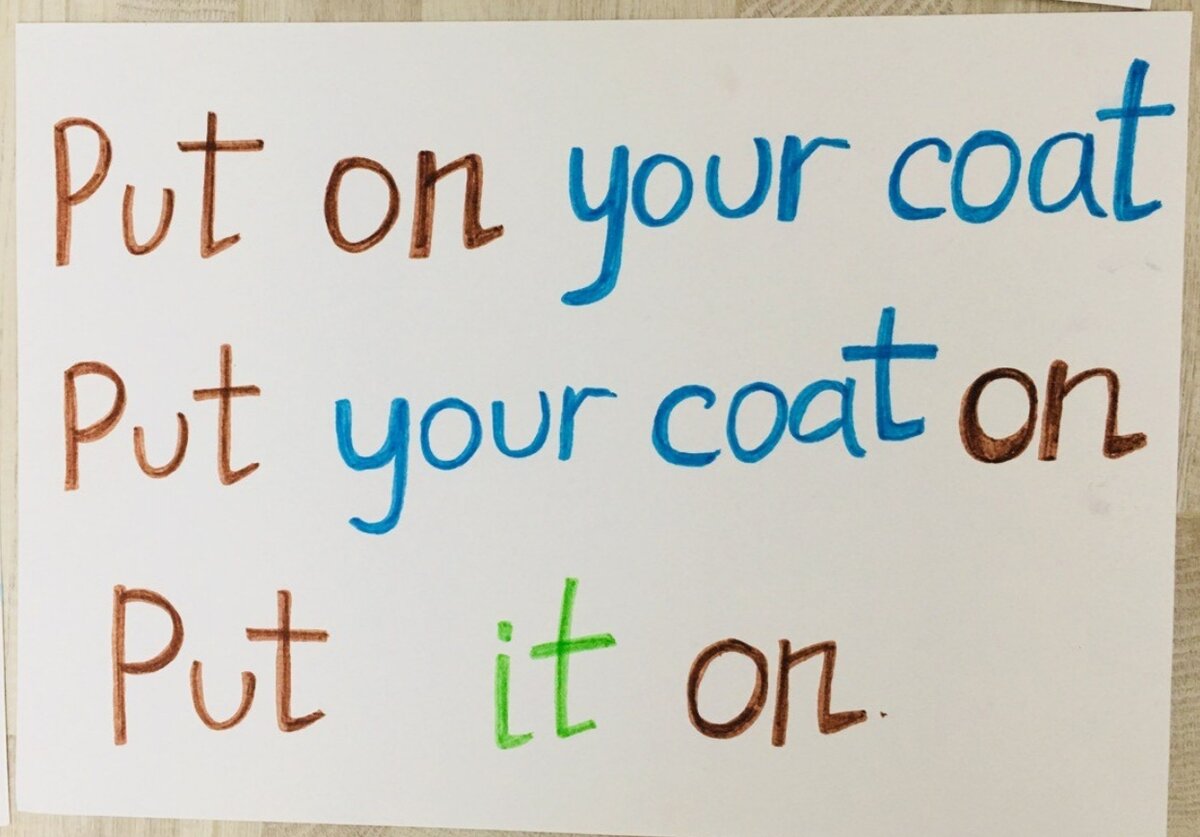 Put on your coat
Put your coat on
Put it on.